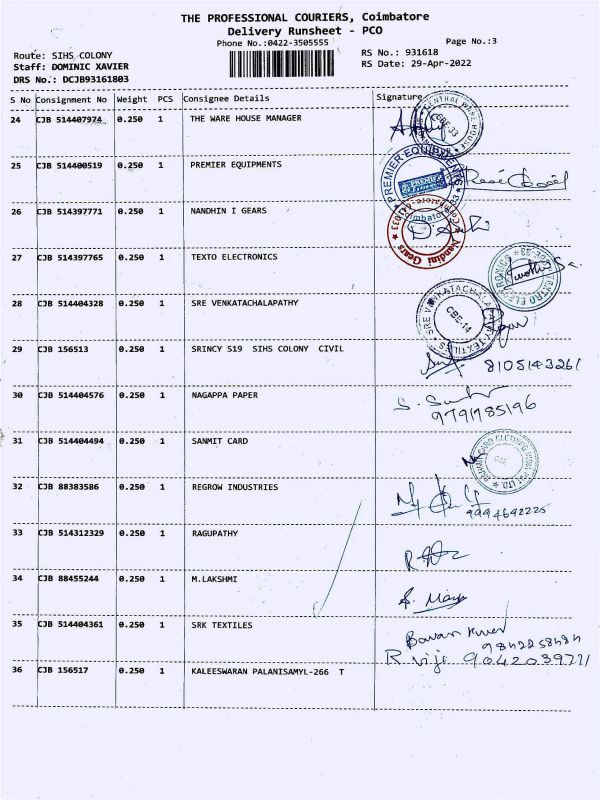 THE PROFESSIONAL COURIERS, Coimbatore
Delivery Runsheet - PCO
Phone No.:0422-3505555
Page No.:3
Route: SIHS COLONY
RS No.: 931618
Staff: DOMINIC XAVIER
RS Date: 29-Apr-2022
DRS No.: DCJB93161803
S No Consignment No Weight PCS Consignee Details Signature
24 CJB 514407974 0.250 1 THE WARE HOUSE MANAGER
CENTRAL WARE HOUSE
CBE-33
25 CJB 514400519 0.250 1 PREMIER EQUIPMENTS
PREMIER EQUIPMENTS
PREMIER
26 CJB 514397771 0.250 1 NANDHIN I GEARS
Nandini Gears
Coimbatore - 641033
27 CJB 514397765 0.250 1 TEXTO ELECTRONICS
28 CJB 514404328 0.250 1 SRE VENKATACHALAPATHY
SRE VENKATACHALAPATHY TEXTILES
CBE-14
29 CJB 156513 0.250 1 SRINCY S19 SIHS COLONY CIVIL
8105143261
30 CJB 514404576 0.250 1 NAGAPPA PAPER
9791785196
31 CJB 514404494 0.250 1 SANMIT CARD
32 CJB 88383586 0.250 1 REGROW INDUSTRIES
9994692225
33 CJB 514312329 0.250 1 RAGUPATHY
34 CJB 88455244 0.250 1 M.LAKSHMI
35 CJB 514404361 0.250 1 SRK TEXTILES
9842258484
R viji 9042039721
36 CJB 156517 0.250 1 KALEESWARAN PALANISAMYL-266 T